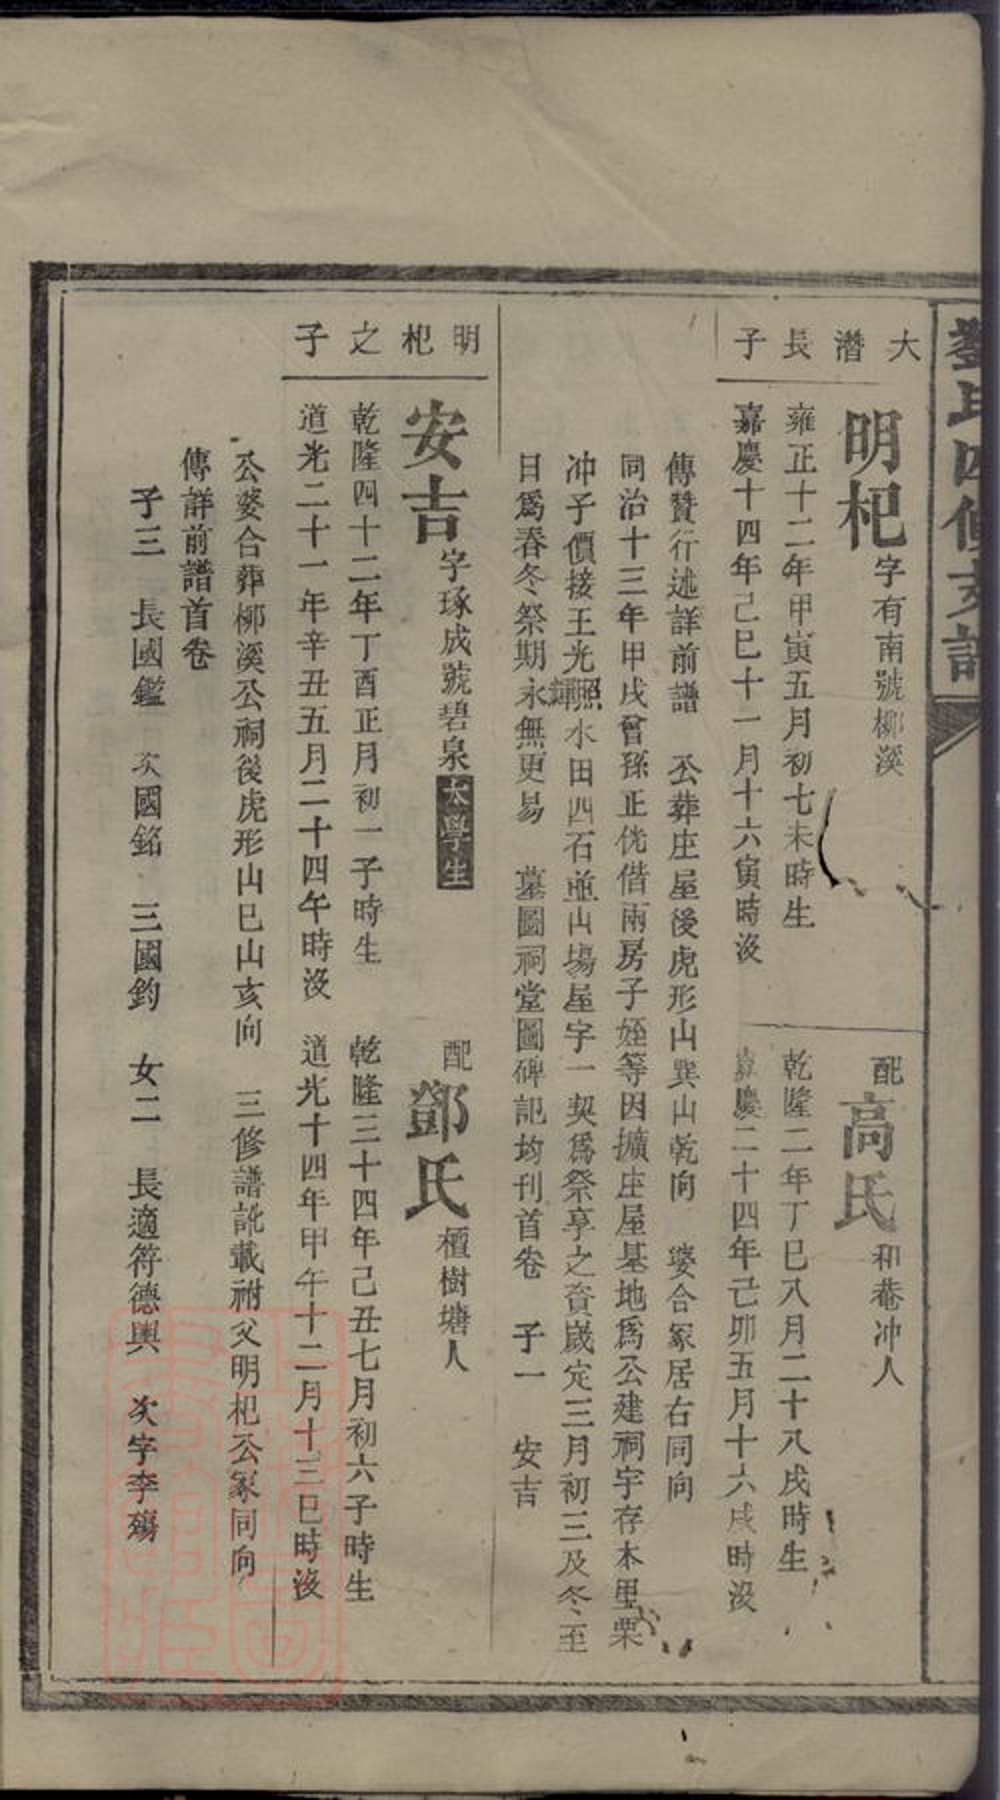 劉氏四修支譜
大潛長子
明杞字有南號柳溪
配高氏和巷冲人
雍正十二年甲寅五月初七未時生
乾隆二年丁巳八月二十八戌時生
嘉慶十四年己巳十一月十六寅時沒
嘉慶二十四年己卯五月十六戌時沒
傳贊行述詳前譜 公葬庄屋後虎形山巽山乾向 婆合冢居右同向
同治十三年甲戌曾孫正侊偕兩房子姪等因擴庄屋基地爲公建祠宇存木里栗
冲子價接王光照輝水田四石並山場屋宇一契爲祭享之資歲定三月初三及冬至
日爲春冬祭期永無更易 墓圖祠堂圖碑記均刊首卷 子一 安吉
明杞之子
安吉字琢成號碧泉太學生
配鄧氏檀樹塘人
乾隆四十二年丁酉正月初一子時生
乾隆三十四年己丑七月初六子時生
道光二十一年辛丑五月二十四午時沒
道光十四年甲午十二月十三巳時沒
公婆合葬柳溪公祠後虎形山巳山亥向 三修譜訛載祔父明杞公冢同向
傳詳前譜首卷
子三 長國鑑 次國銘 三國鈞 女二 長適符德輿 次字李殤